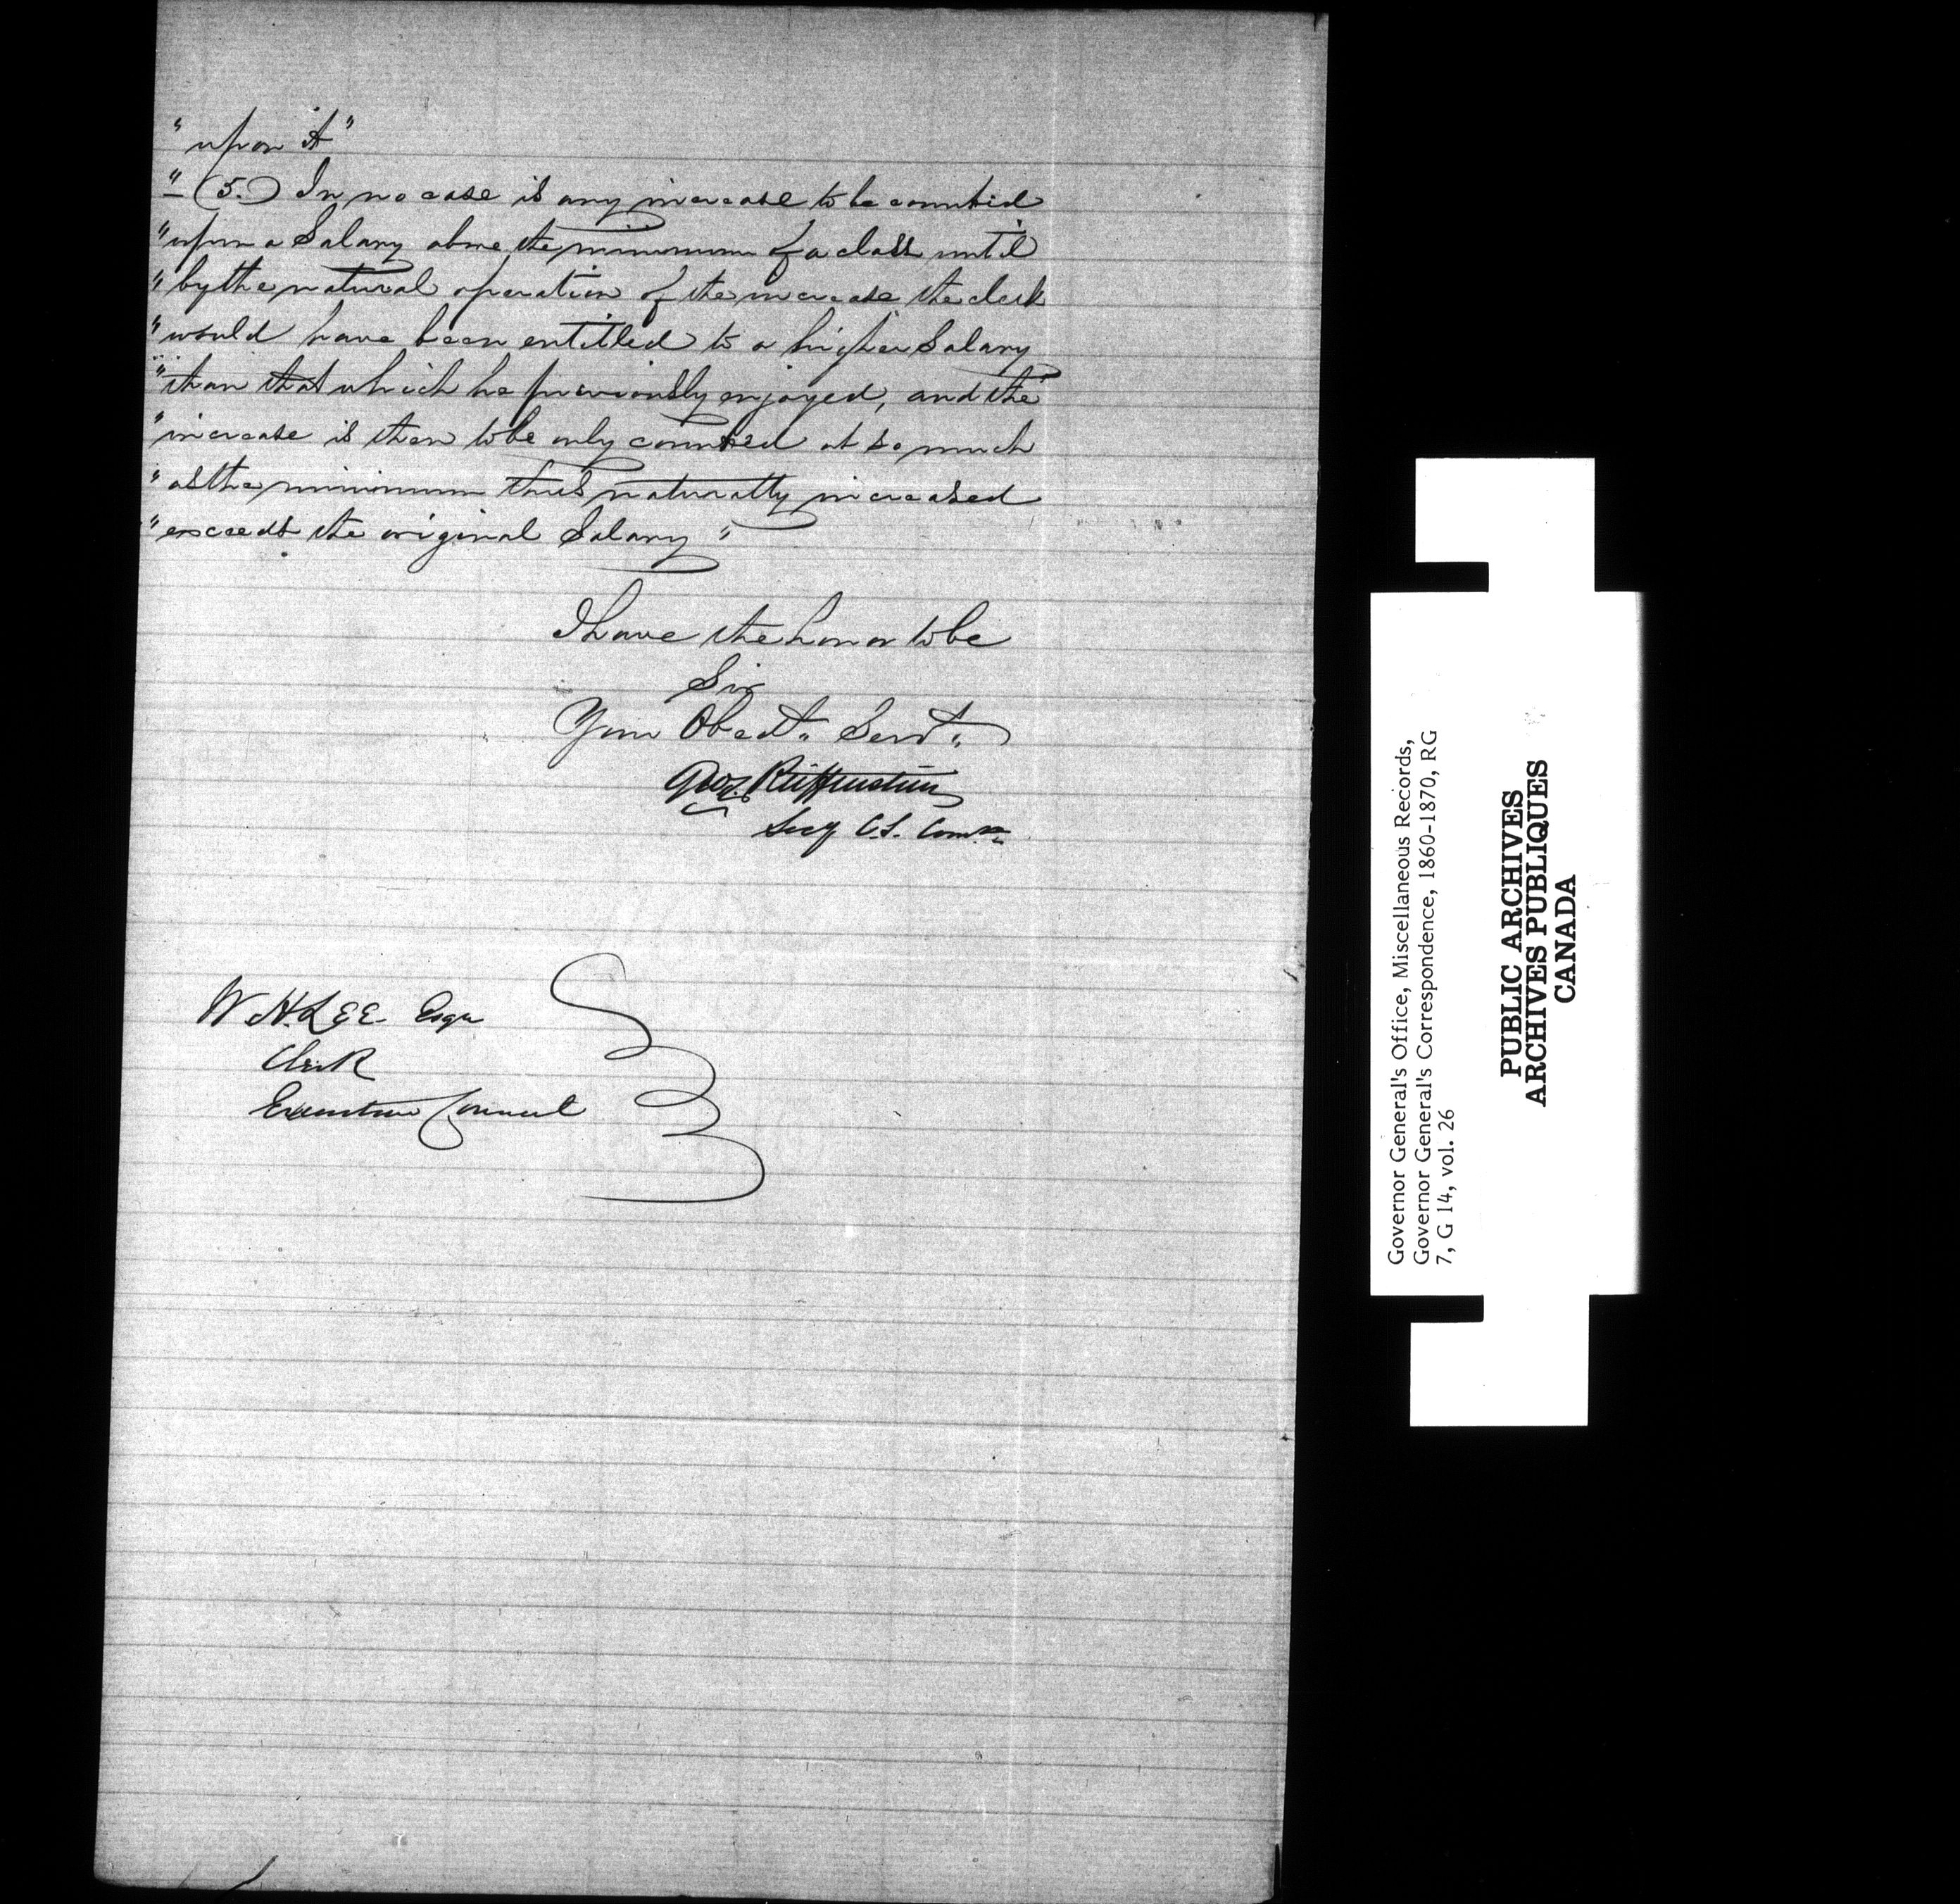 " upon it "
" (5.) In no case is any increase to be counted
" upon a Salary above the minimum of a class until
" by the natural operation of the increase the clerk
" would have been entitled to a higher Salary
" than that which he previously enjoyed, and the
" increase is then to be only counted at so much
" as the minimum thus naturally increased
" exceeds the original Salary "
I have the honor to be
Sir
Your Obedt. Servt.
Geo. Reiffenstein
Secy C.S. Comn.
W. H. LEE Esqr
Clerk
Executive Council
Governor General's Office, Miscellaneous Records,
Governor General's Correspondence, 1860-1870, RG
7, G 14, vol. 26
PUBLIC ARCHIVES
ARCHIVES PUBLIQUES
CANADA